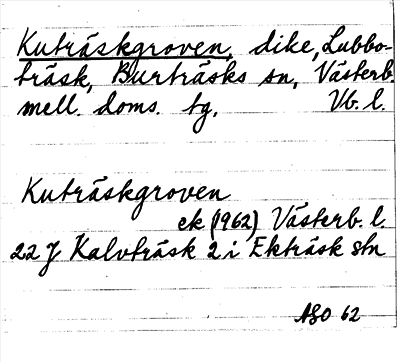 Kuträskgroven, dike, Lubbo-
träsk, Burträsks sn, Västerb.
mell. doms. tg, Vb. l.
Kuträskgroven
ek (1962) Västerb. l.
22 J Kalvträsk 2 i Ekträsk stn
ASO 62